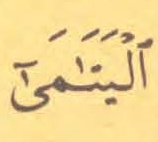 ٱلْيَتَٰمَىٰٓ